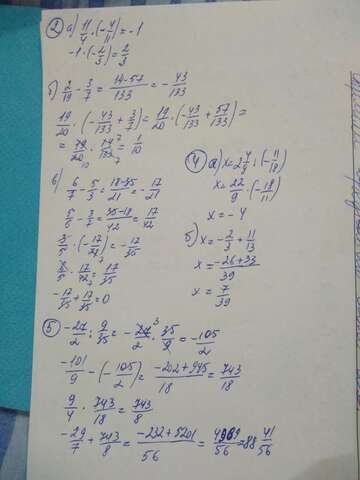 ② а) 11/4 · (-4/11) = -1
-1 · (-2/3) = 2/3
б) 2/19 - 3/7 = 14-57/133 = -43/133
19/20 · (-43/133 + 3/7) = 19/20 · (-43/133 + 57/133) =
= 19/20 · 14/133 = 1/10
в) 6/7 - 5/3 = 18-35/21 = -17/21
5/6 - 3/7 = 35-18/42 = 17/42
· (-17/21) = -17/35
· 17/42 = 17/35
-17/35 + 17/35 = 0
④ а) x = 2 4/9 : (-11/18)
x = 22/9 · (-18/11)
x = -4
б) x = -2/3 + 11/13
x = -26+33/39
x = 7/39
⑤ -27/2 : 9/35 = -27/2 · 35/9 = -105/2
-101/9 - (-105/2) = -202+945/18 = 743/18
9/4 · 743/18 = 743/8
-29/7 + 743/8 = -232+5201/56 = 4969/56 = 88 41/56